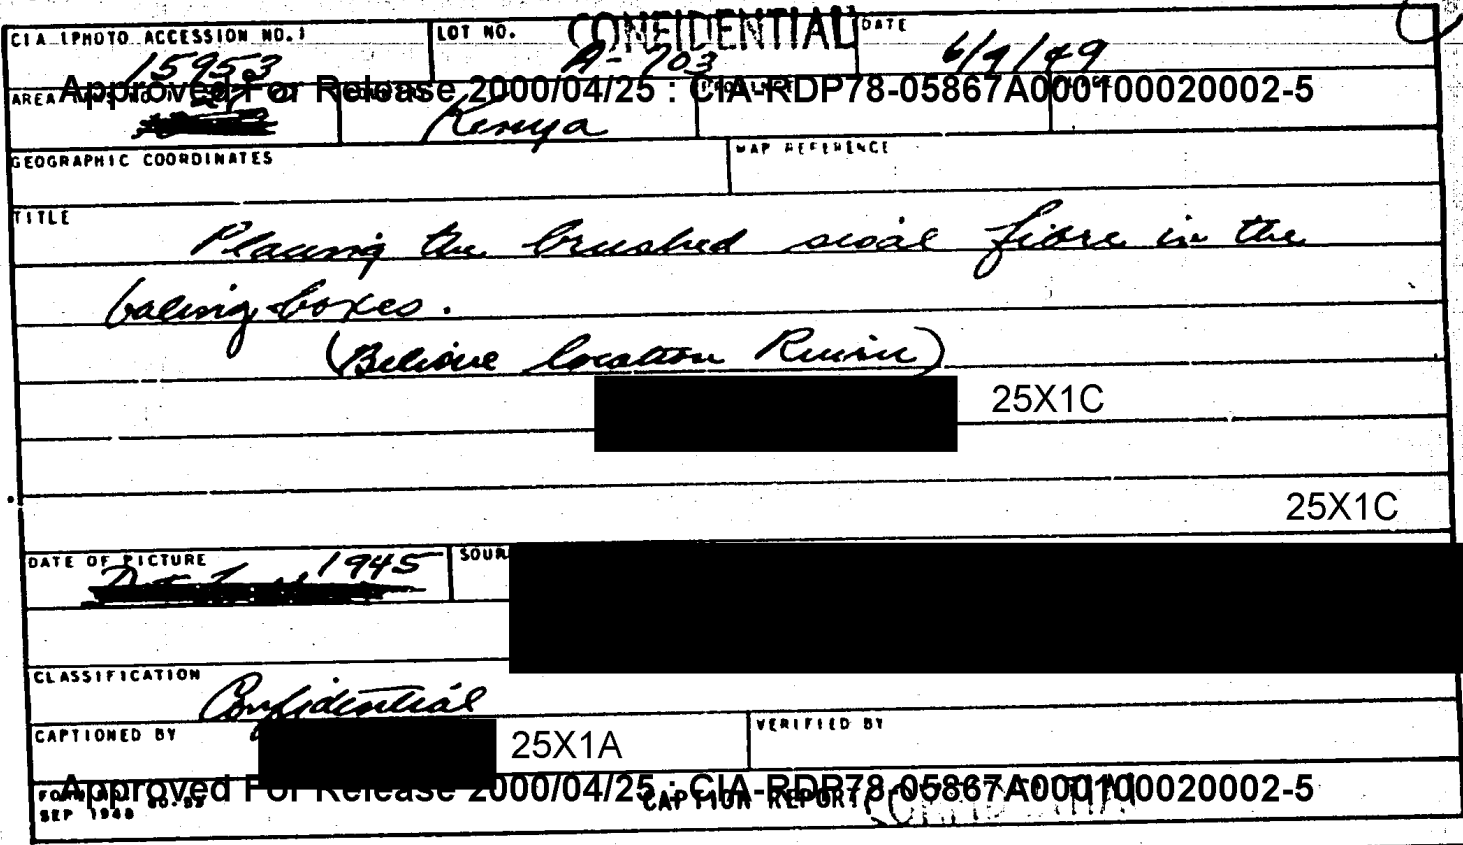 CONFIDENTIAL
CIA (PHOTO ACCESSION NO.) 15953
LOT NO. A-703
DATE 6/9/49
Approved For Release 2000/04/25 : CIA-RDP78-05867A000100020002-5
AREA
Kenya
GEOGRAPHIC COORDINATES
MAP REFERENCE
TITLE
Placing the brushed sisal fibre in the
baling boxes.
(Believe location Ruiru)
25X1C
25X1C
DATE OF PICTURE 1945
CLASSIFICATION Confidential
CAPTIONED BY 25X1A
VERIFIED BY
Approved For Release 2000/04/25 : CIA-RDP78-05867A000100020002-5
SEP 1948
CAPTION REPORT
CONFIDENTIAL